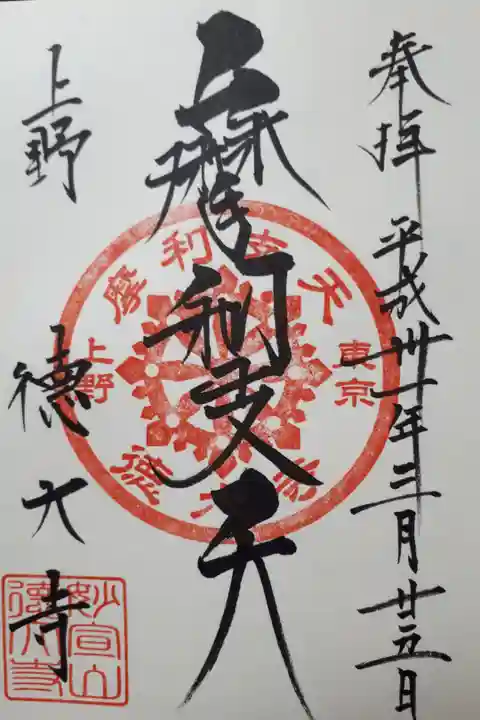 奉拝 平成卅一年三月廿五日
摩利支天
上野 德大寺
摩利支天
東京
上野
德大寺
妙宣山
德大寺